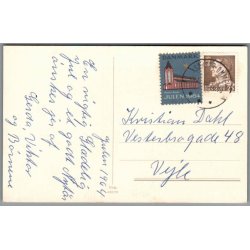 Julen 1964
En rigtig Glædelig
Jul og et godt Nytår
ønskes jer af
Gerda, Viktor
og Børnene
DANMARK
JULEN 1964
Kristian Dahl
Vesterbrogade 48
Vejle